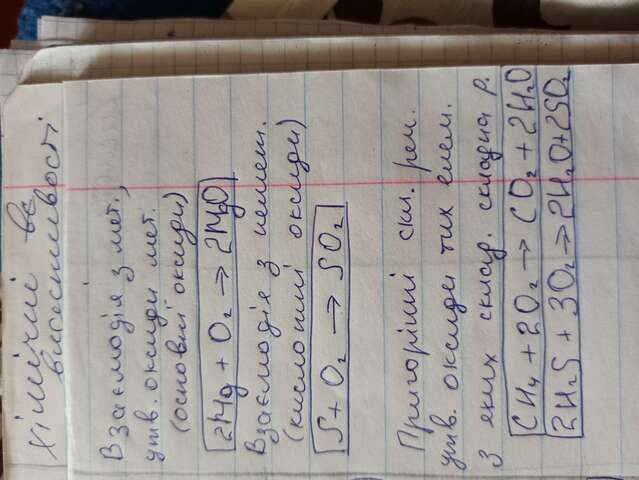 Хімічні вс
властивості
Взаємодія з мет.,
утв. оксиди мет.
(основні оксиди)
2Mg + O₂ → 2MgO
Взаємодія з немет.
(кислотні оксиди)
S + O₂ → SO₂
Пригорінні скл. реч.
утв. оксиди тих елем.
з яких склад. складна р.
CH₄ + 2O₂ → CO₂ + 2H₂O
2H₂S + 3O₂ → 2H₂O + 2SO₂